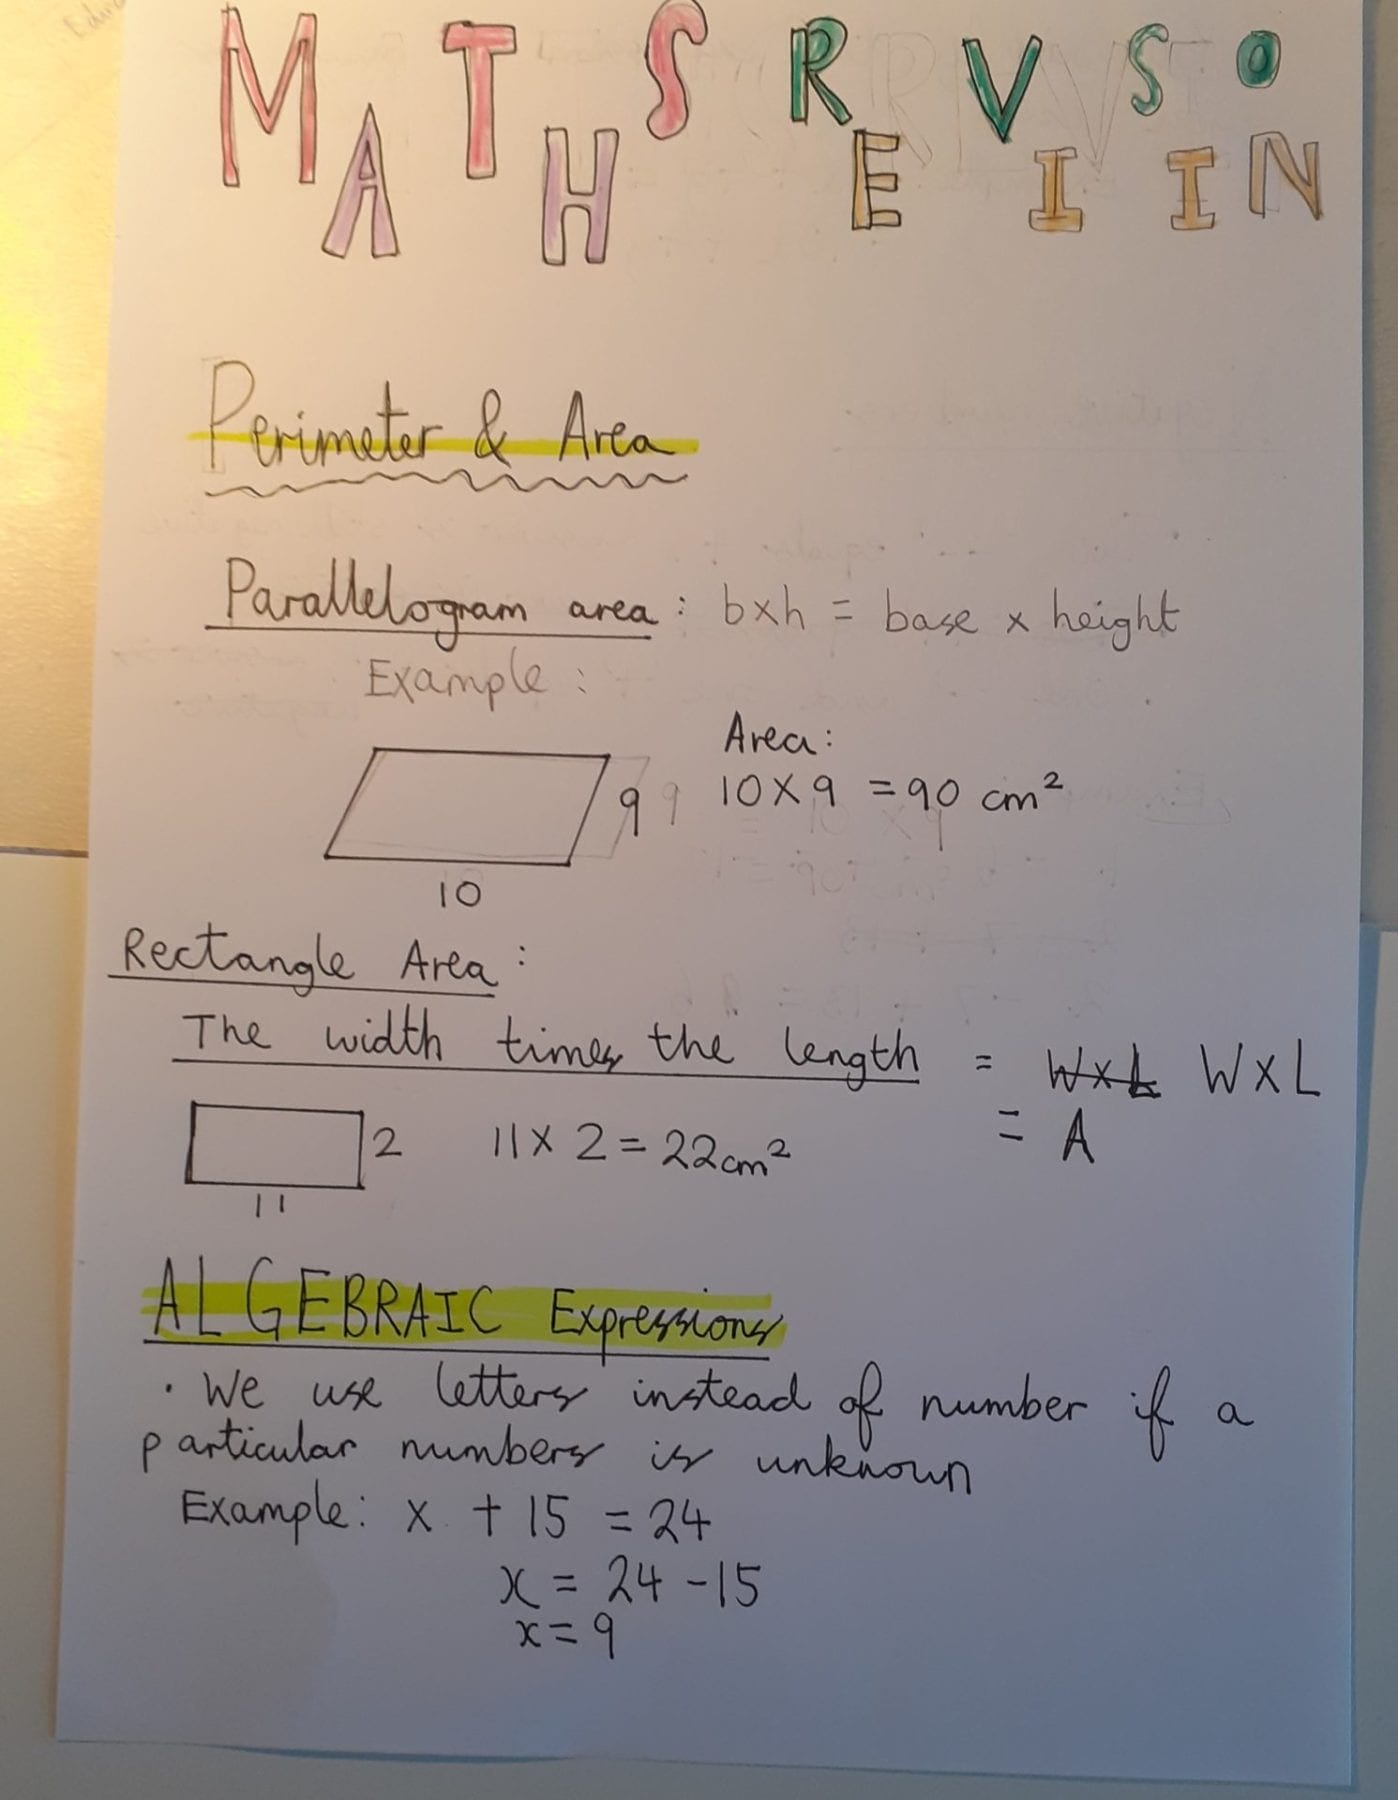 MATHS REVISION
Perimeter & Area
Parallelogram area : bxh = base x height
Example :
Area:
9 9 10 X 9 = 90 cm²
10
Rectangle Area :
The width times the length = WxL WxL
= A
2 11 x 2 = 22cm²
11
ALGEBRAIC Expressions
· We use letters instead of number if a
particular numbers is unknown
Example: x + 15 = 24
x = 24 - 15
x = 9